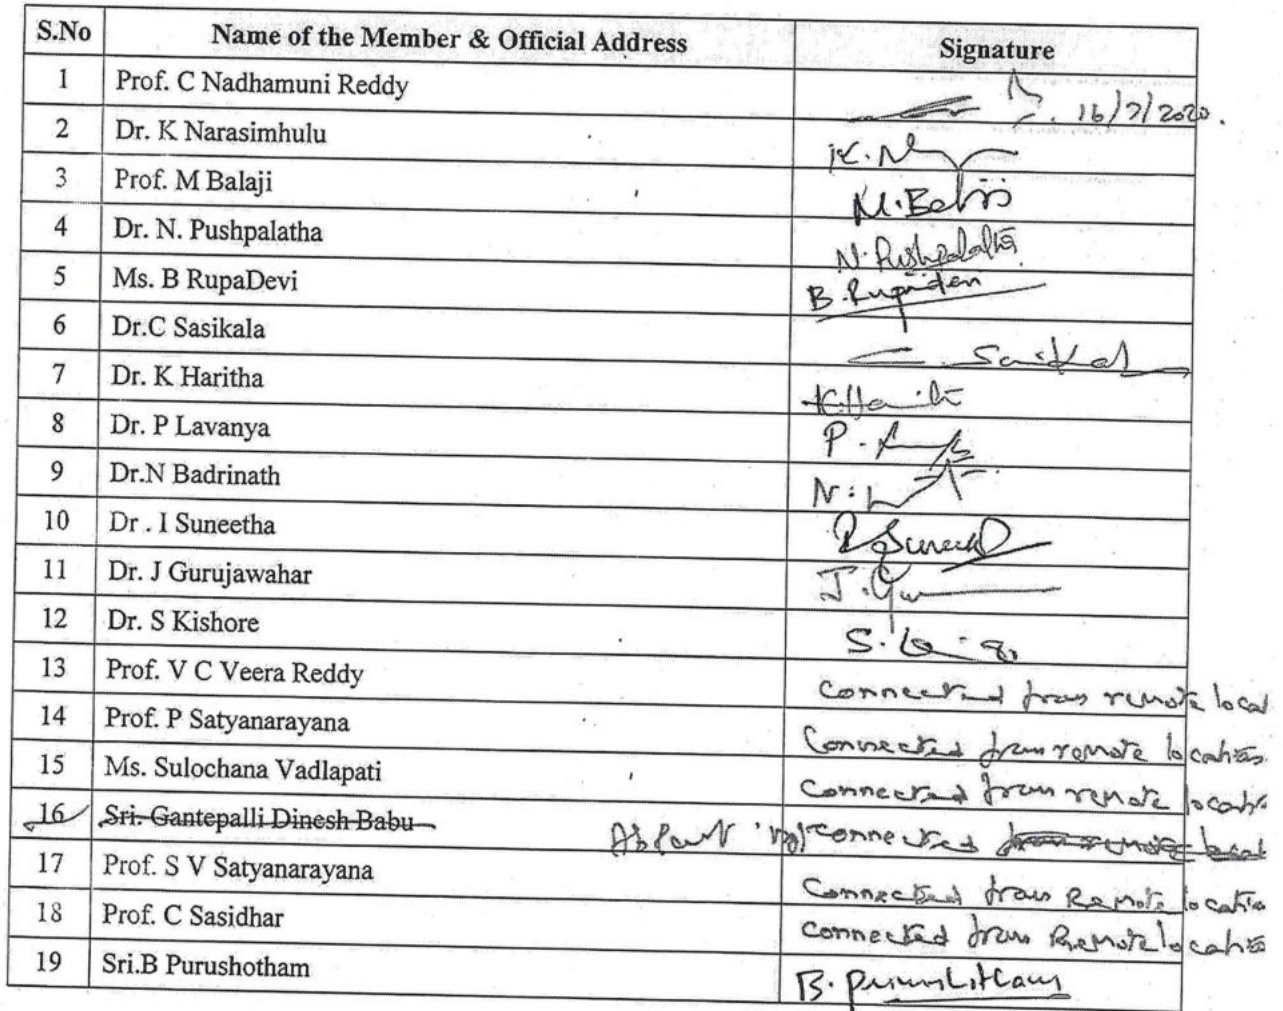 S.No Name of the Member & Official Address Signature
1 Prof. C Nadhamuni Reddy 16/7/2020.
2 Dr. K Narasimhulu K.N
3 Prof. M Balaji M.Balaji
4 Dr. N. Pushpalatha N.Pushpalatha
5 Ms. B RupaDevi B.Rupadevi
6 Dr.C Sasikala C. Sasikala
7 Dr. K Haritha K.Haritha
8 Dr. P Lavanya P.
9 Dr.N Badrinath N.
10 Dr . I Suneetha
11 Dr. J Gurujawahar J.Gu
12 Dr. S Kishore S.
13 Prof. V C Veera Reddy Connected from remote locat
14 Prof. P Satyanarayana Connected from remote location
15 Ms. Sulochana Vadlapati Connected from remote locatio
16 Sri. Gantepalli Dinesh Babu Absent not connected from remote locat
17 Prof. S V Satyanarayana Connected from Remote locatio
18 Prof. C Sasidhar Connected from Remote location
19 Sri.B Purushotham B. Purushotham